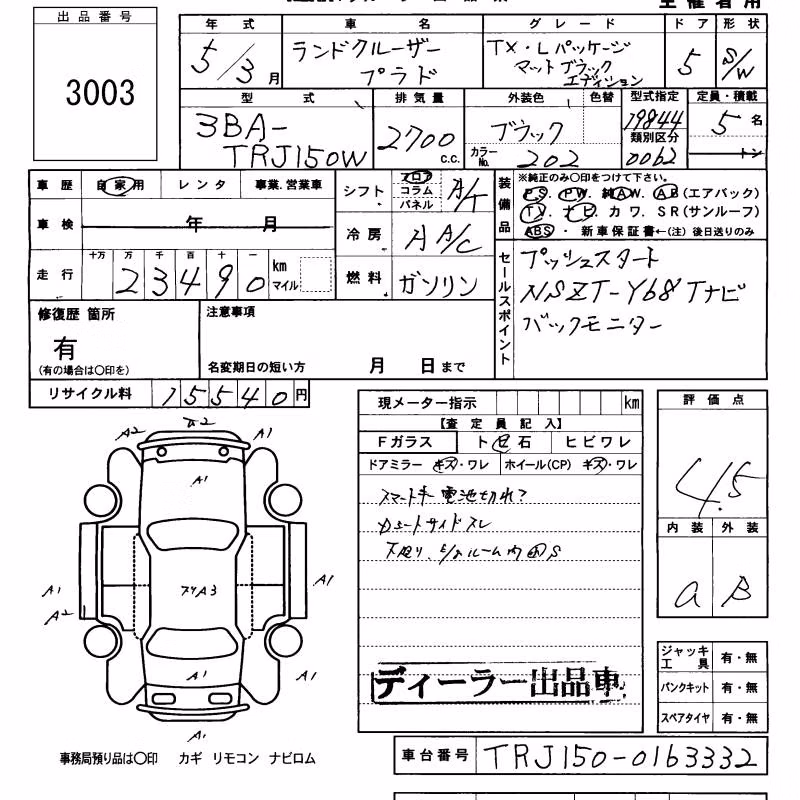 出品番号
3003
年式 車名 グレード ドア 形状
5/3月 ランドクルーザー プラド TX・Lパッケージ マットブラック エディション 5 S/W
型式 排気量 外装色 色替 型式指定 定員・積載
3BA-TRJ150W 2700 C.C. ブラック カラーNo. 202 19844 類別区分 0062 5名 トン
車歴 自家用 レンタ 事業.営業車
車検 年 月
走行 十万 万 千 百 十 一
23490 km マイル
シフト フロア コラム パネル A/T
冷房 A A/C
燃料 ガソリン
装備品
※純正のみ〇印をつけて下さい。
PS. PW. 純AW. AB(エアバック)
TV. ナビ. カワ. SR(サンルーフ)
ABS・ 新車保証書←(注) 後日送りのみ
セールスポイント
プッシュスタート
NSZT-Y68Tナビ
バックモニター
修復歴 箇所
有
(有の場合は〇印を)
注意事項
名変期日の短い方 月 日まで
リサイクル料 15540円
現メーター指示 km
【査定員記入】
Fガラス トビ石 ヒビワレ
ドアミラー キズ・ワレ ホイール(CP) キズ・ワレ
スマートキー電池切れ?
S
ディーラー出品車
評価点
4.5
内装 外装
a B
A2
A1
A1
A1
A2
A1
A1
A1
ジャッキ工具 有・無
パンクキット 有・無
スペアタイヤ 有・無
事務局預り品は〇印 カギ リモコン ナビロム
車台番号 TRJ150-0163332